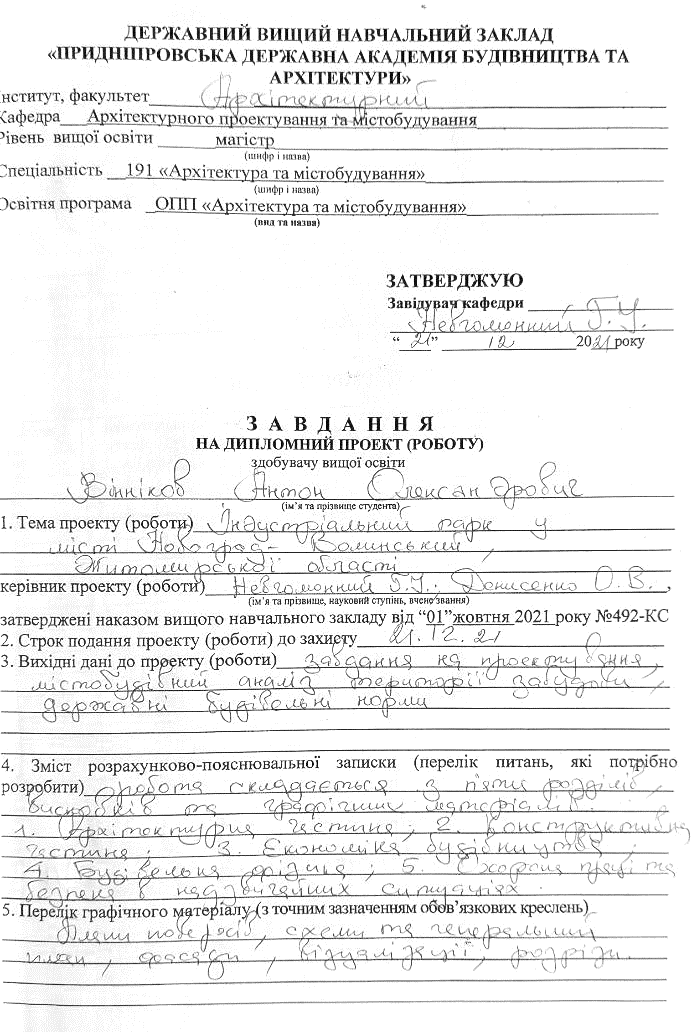 ДЕРЖАВНИЙ ВИЩИЙ НАВЧАЛЬНИЙ ЗАКЛАД
«ПРИДНІПРОВСЬКА ДЕРЖАВНА АКАДЕМІЯ БУДІВНИЦТВА ТА
АРХІТЕКТУРИ»
Інститут, факультет Архітектурний
Кафедра Архітектурного проектування та містобудування
Рівень вищої освіти магістр
(шифр і назва)
Спеціальність 191 «Архітектура та містобудування»
(шифр і назва)
Освітня програма ОПП «Архітектура та містобудування»
(вид та назва)
ЗАТВЕРДЖУЮ
Завідувач кафедри
Невгомонний Г.У.
“21” 12 2021 року
З А В Д А Н Н Я
НА ДИПЛОМНИЙ ПРОЕКТ (РОБОТУ)
здобувачу вищої освіти
Вінніков Антон Олександрович
(ім’я та прізвище студента)
1. Тема проекту (роботи) Індустріальний парк у
місті Новоград-Волинський,
Житомирської області
керівник проекту (роботи) Невгомонний Г.У., Денисенко О.В.,
(ім’я та прізвище, науковий ступінь, вчене звання)
затверджені наказом вищого навчального закладу від “01”жовтня 2021 року №492-КС
2. Строк подання проекту (роботи) до захисту 21.12.21
3. Вихідні дані до проекту (роботи) завдання на проектування,
містобудівний аналіз території забудови,
державні будівельні норми
4. Зміст розрахунково-пояснювальної записки (перелік питань, які потрібно
розробити) робота складається з п'яти розділів,
висновків та графічних матеріалів
1. Архітектурна частина; 2. Конструктивна
частина; 3. Економіка будівництва;
4. Будівельна фізика; 5. Охорона праці та
безпека в надзвичайних ситуаціях.
5. Перелік графічного матеріалу (з точним зазначенням обов’язкових креслень)
Плани поверхів, схеми та генеральний
план, фасади, візуалізації, розрізи.